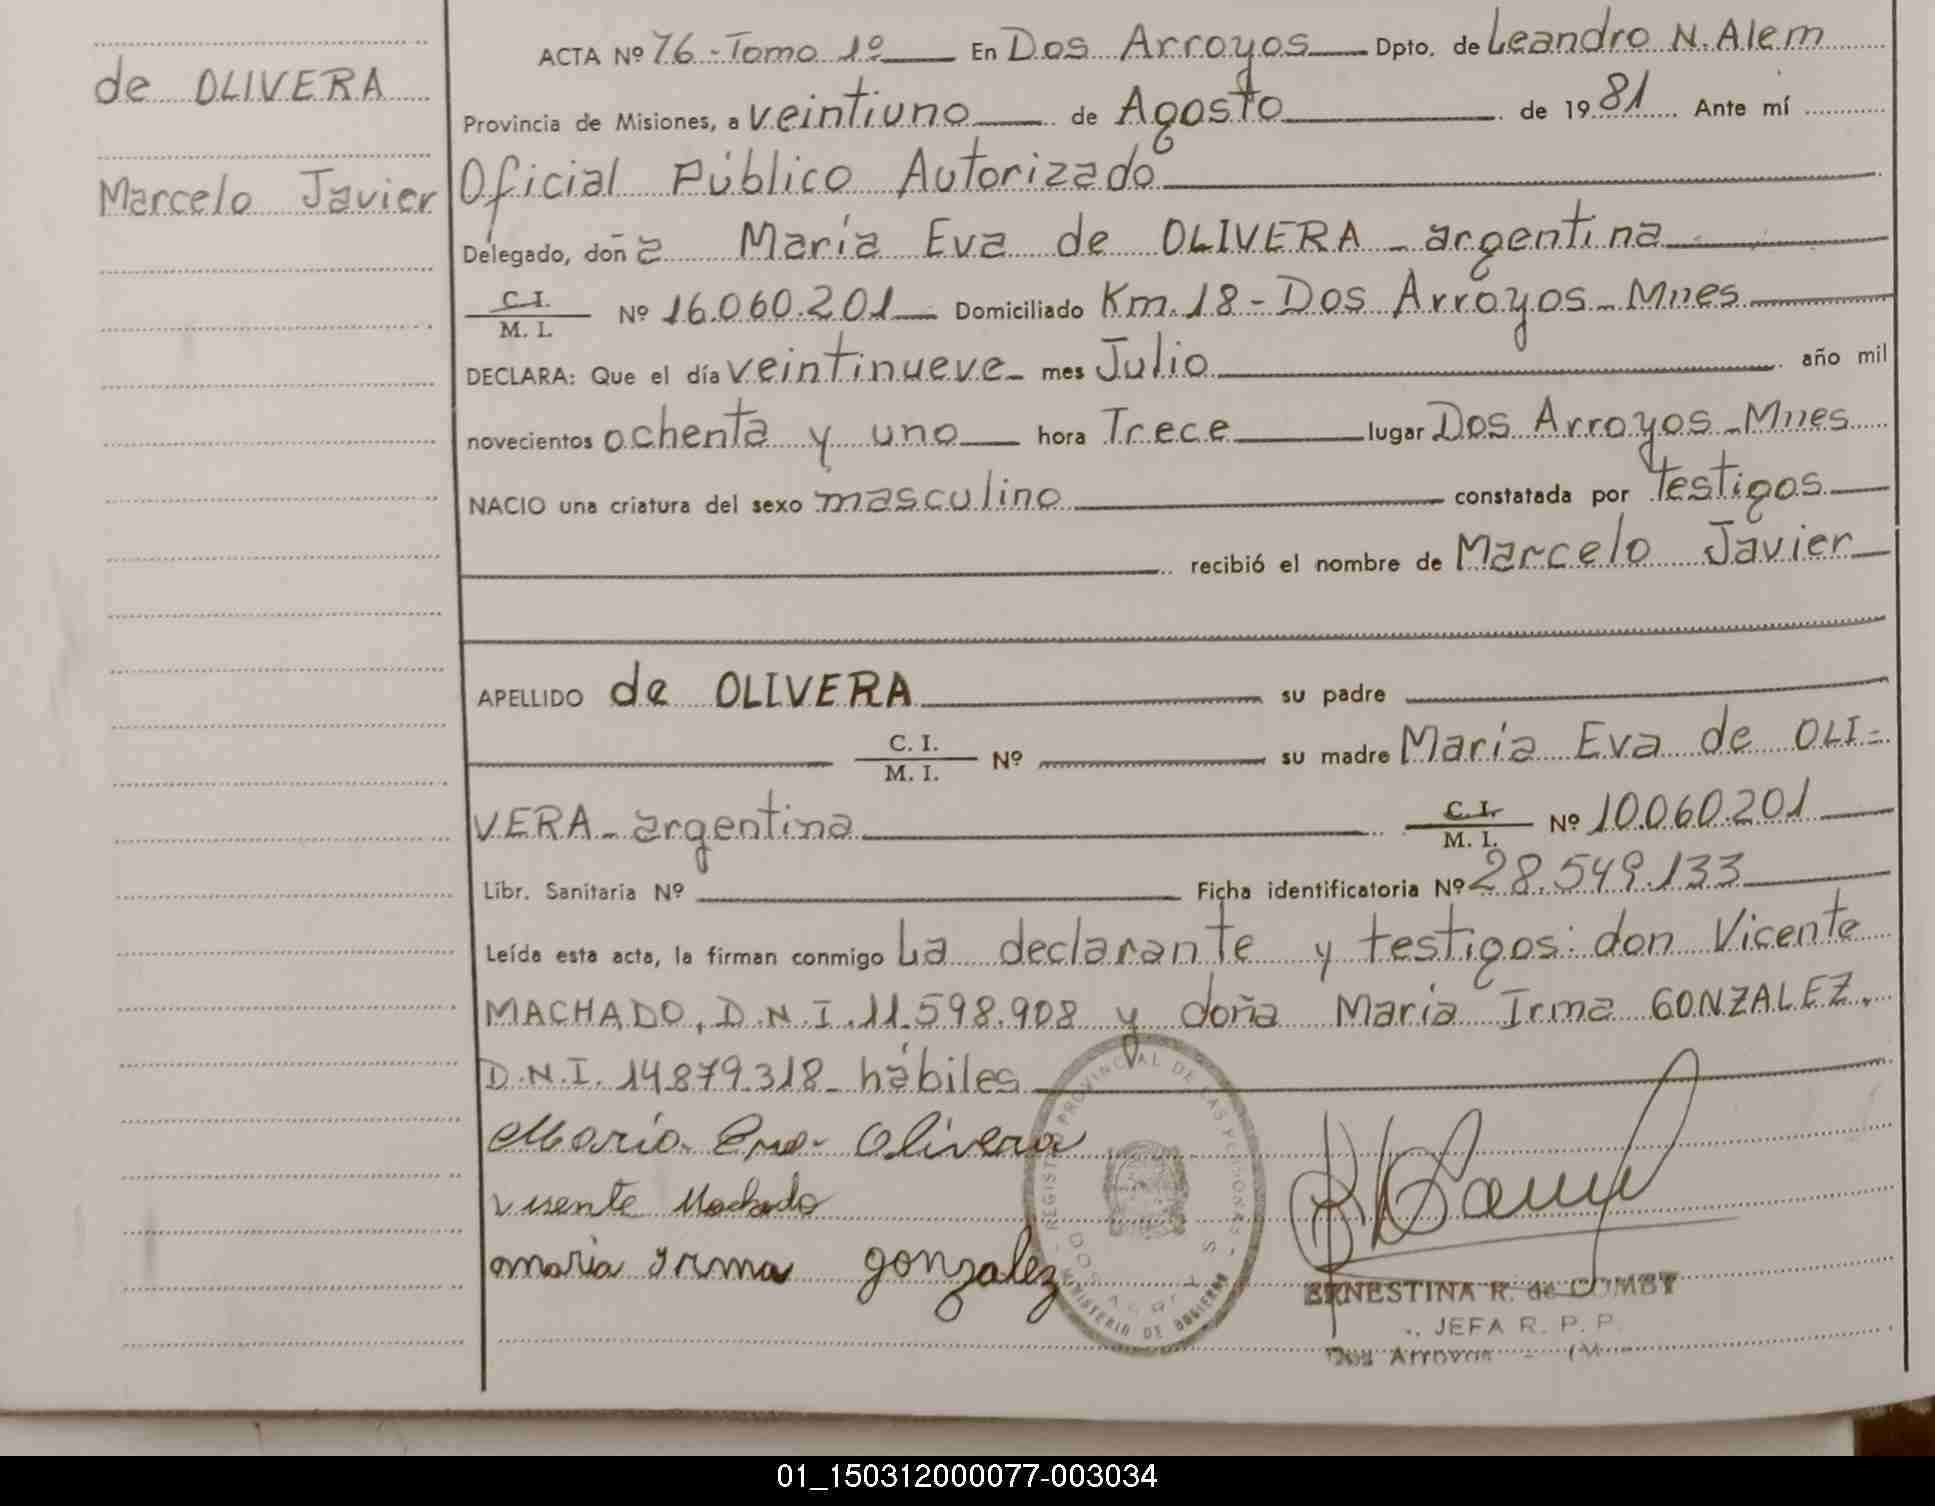 de OLIVERA
Marcelo Javier
ACTA Nº 76 - Tomo 1º En Dos Arroyos Dpto. de Leandro N. Alem
Provincia de Misiones, a veintiuno de Agosto de 1981 Ante mí
Oficial Público Autorizado
Delegado, doña María Eva de OLIVERA - argentina
C.I. / M. I. Nº 16.060.201 Domiciliado Km. 18 - Dos Arroyos - Mnes
DECLARA: Que el día veintinueve - mes Julio año mil
novecientos ochenta y uno hora Trece lugar Dos Arroyos - Mnes
NACIO una criatura del sexo masculino constatada por testigos
recibió el nombre de Marcelo Javier
APELLIDO de OLIVERA su padre
C. I. / M. I. Nº su madre María Eva de OLI=
VERA - argentina C.I. / M. I. Nº 10.060.201
Libr. Sanitaria Nº Ficha identificatoria Nº 28.549.133
Leída esta acta, la firman conmigo La declarante y testigos: don Vicente
MACHADO, D.N.I. 11.598.908 y doña María Irma GONZALEZ.
D.N.I. 14.879.318 - hábiles
María Eva Olivera
Visente Machado
maria Irma gonzalez
REGISTRO PROVINCIAL DE LAS PERSONAS
DOS ARROYOS
MINISTERIO DE GOBIERNO
ERNESTINA R. de COMBY
JEFA R. P. P.
Dos Arroyos
01_150312000077-003034